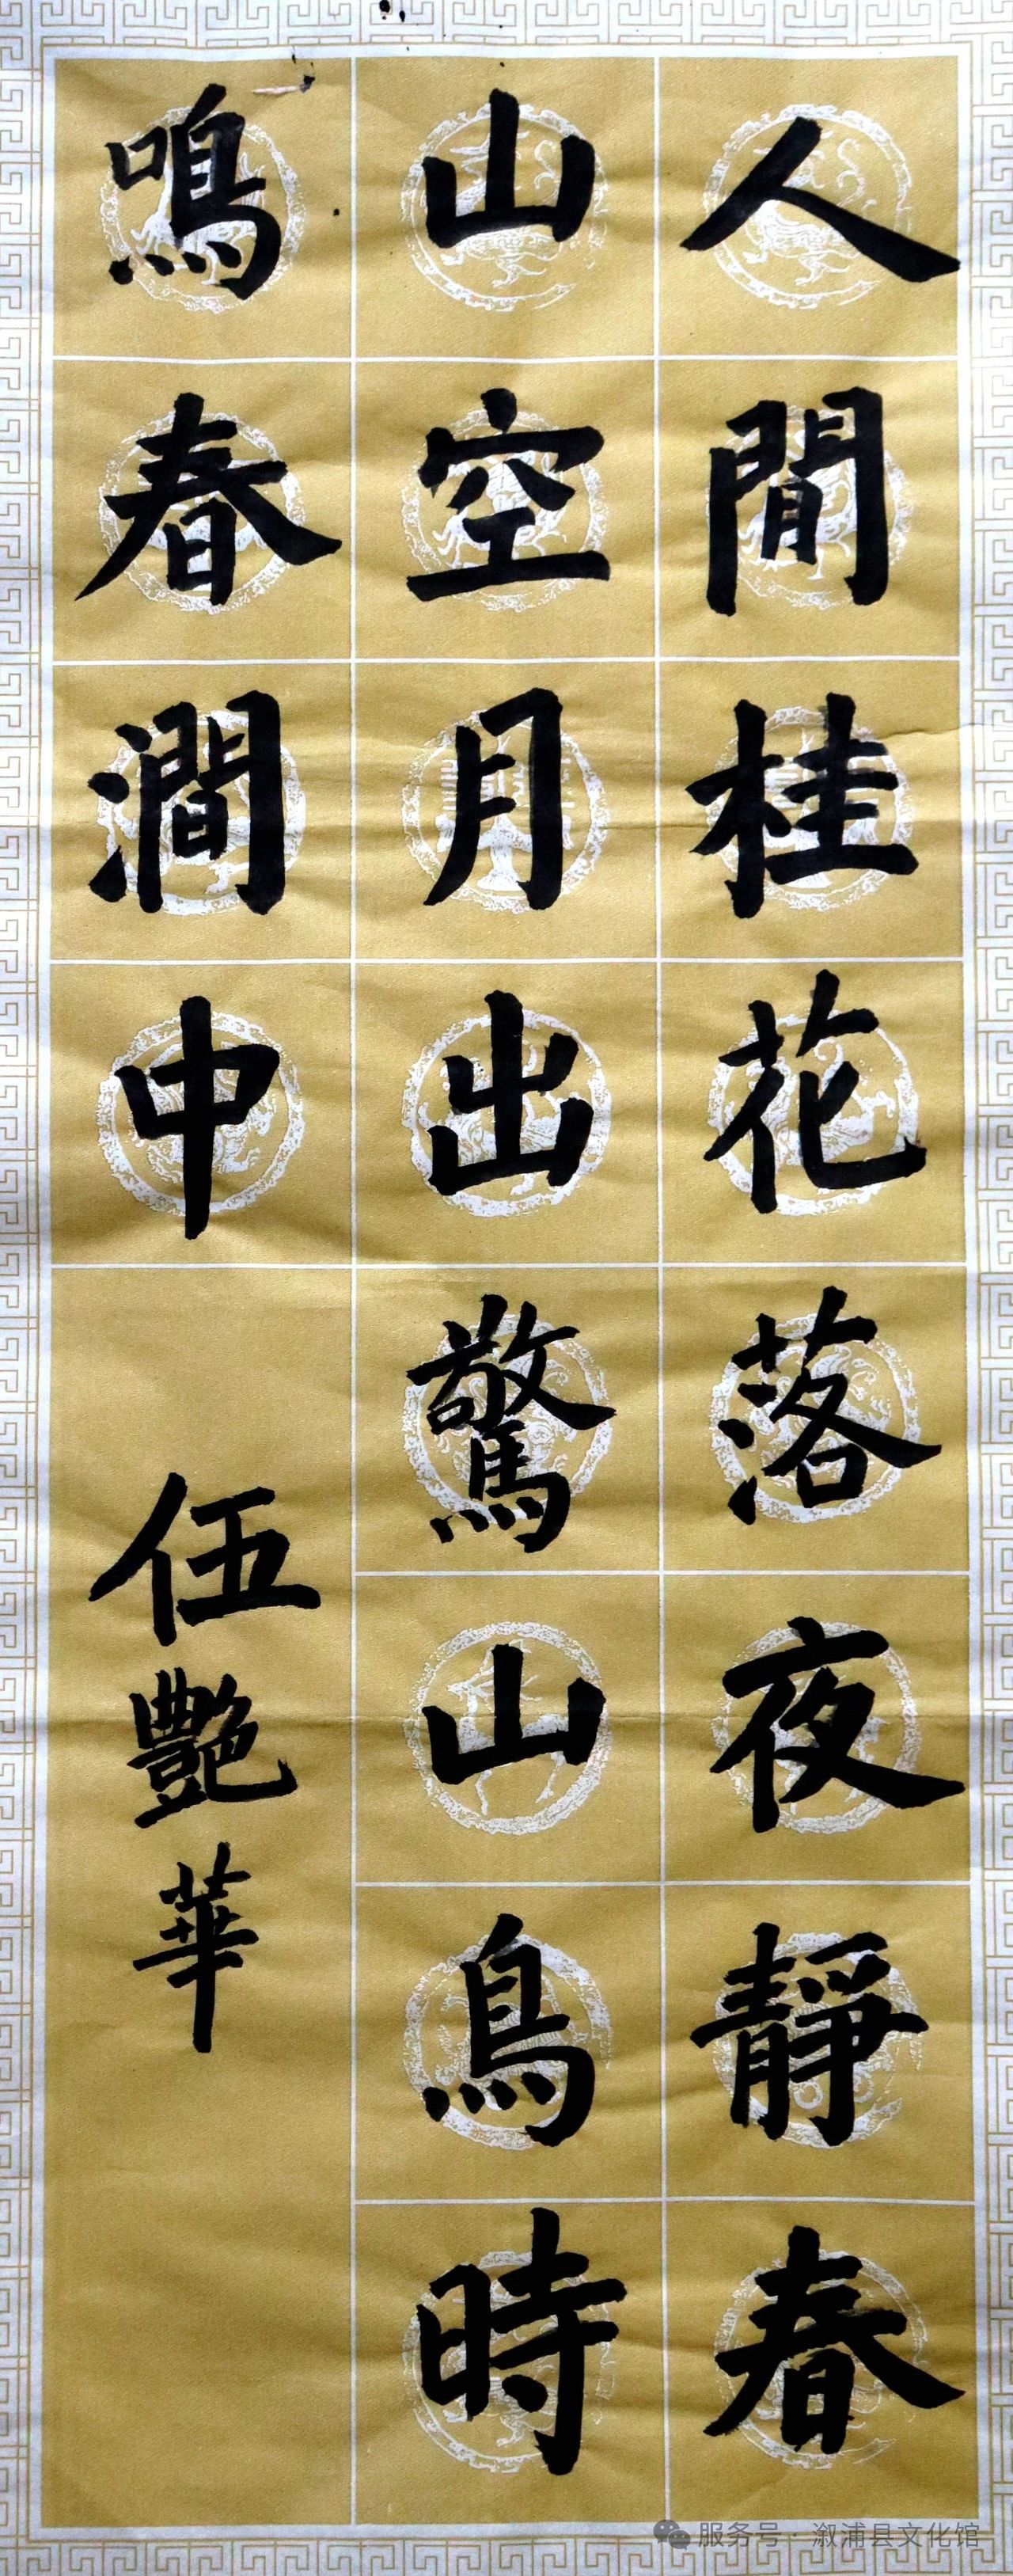 人間桂花落夜靜春
山空月出驚山鳥時
鳴春澗中
伍艷華
服务号·溆浦县文化馆